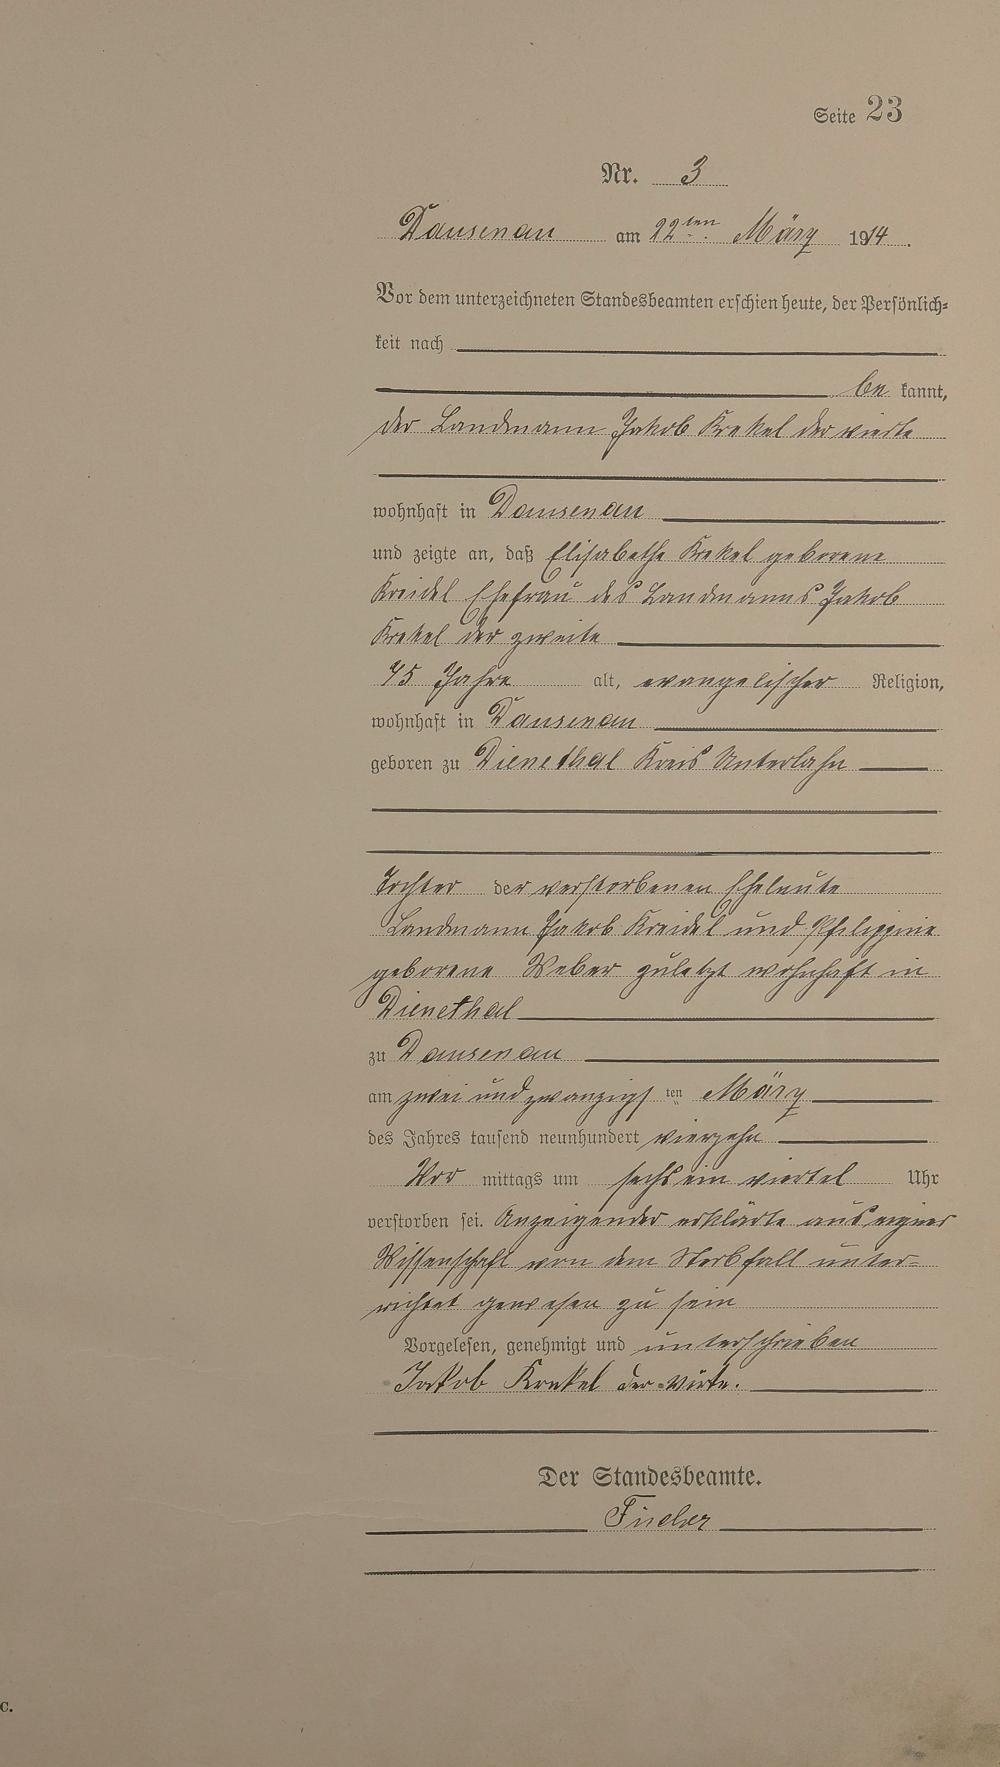 Seite 23
Nr. 3
Dausenau am 22ten März 1914.
Vor dem unterzeichneten Standesbeamten erschien heute, der Persönlich-
keit nach
be kannt,
der Landmann Jakob Krekel der vierte
wohnhaft in Dausenau
und zeigte an, daß Elisabethe Krekel geborene
Kreidel Ehefrau des Landmanns Jakob
Krekel der zweite
75 Jahre alt, evangelischer Religion,
wohnhaft in Dausenau
geboren zu Dienethal Kreis Unterlahn
Tochter der verstorbenen Eheleute
Landmann Jakob Kreidel und Philippine
geborene Weber zuletzt wohnhaft in
Dienethal
zu Dausenau
am zwei und zwanzigs ten März
des Jahres tausend neunhundert vierzehn
Vor mittags um sechs ein viertel Uhr
verstorben sei. Anzeigender erklärte aus eigner
Wissenschaft von dem Sterbfall unter-
richtet gewesen zu sein
Vorgelesen, genehmigt und unterschrieben
Jakob Krekel der
Der Standesbeamte.
c.